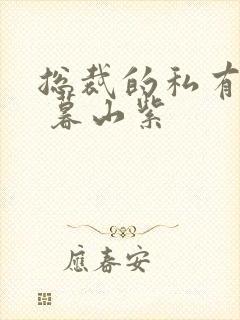 总裁的私有
暮山紫
應春安